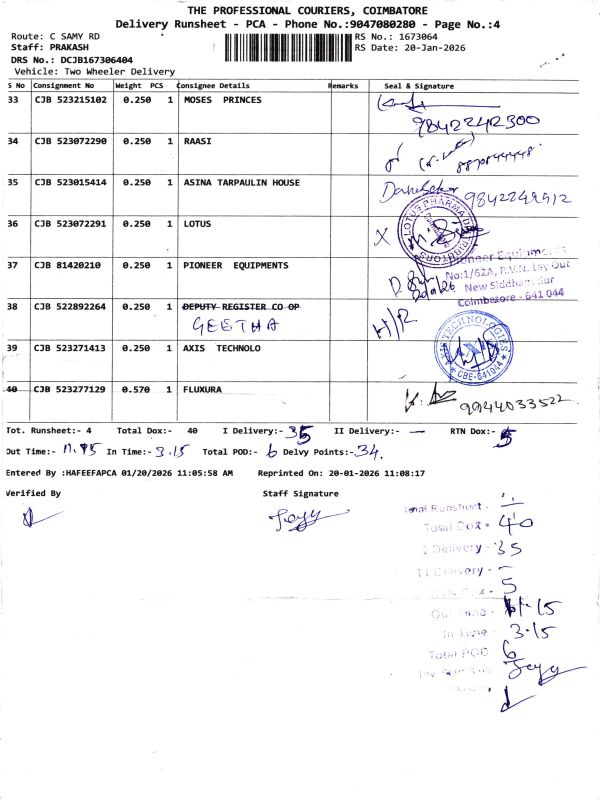 THE PROFESSIONAL COURIERS, COIMBATORE
Delivery Runsheet - PCA - Phone No.:9047080280 - Page No.:4
Route: C SAMY RD
RS No.: 1673064
Staff: PRAKASH
RS Date: 20-Jan-2026
DRS No.: DCJB167306404
Vehicle: Two Wheeler Delivery
S No Consignment No Weight PCS Consignee Details Remarks Seal & Signature
33 CJB 523215102 0.250 1 MOSES PRINCES
9842242300
34 CJB 523072290 0.250 1 RAASI
8870844448
35 CJB 523015414 0.250 1 ASINA TARPAULIN HOUSE
9842249912
36 CJB 523072291 0.250 1 LOTUS X
LOTUS PHARMA DISTRIBUTORS
Coimbatore
37 CJB 81420210 0.250 1 PIONEER EQUIPMENTS
Pioneer Equipments
No:1/62A, P.V.N. Lay Out
New Siddhapudur
Coimbatore - 641 044
38 CJB 522892264 0.250 1 DEPUTY REGISTER CO OP
GEETHA
H/R
39 CJB 523271413 0.250 1 AXIS TECHNOLO
TECHNOLOGIES
CBE-641044
40 CJB 523277129 0.570 1 FLUXURA
9944033522
Tot. Runsheet:- 4 Total Dox:- 40 I Delivery:- 35 II Delivery:- — RTN Dox:- 5
Out Time:- 11.15 In Time:- 3.15 Total POD:- 6 Delvy Points:- 34.
Entered By :HAFEEFAPCA 01/20/2026 11:05:58 AM Reprinted On: 20-01-2026 11:08:17
Verified By
Staff Signature
Total Runsheet -
Total Dox - 40
I Delivery - 35
II Delivery - —
5
Out Time - 11.15
In Time - 3.15
Total POD 6